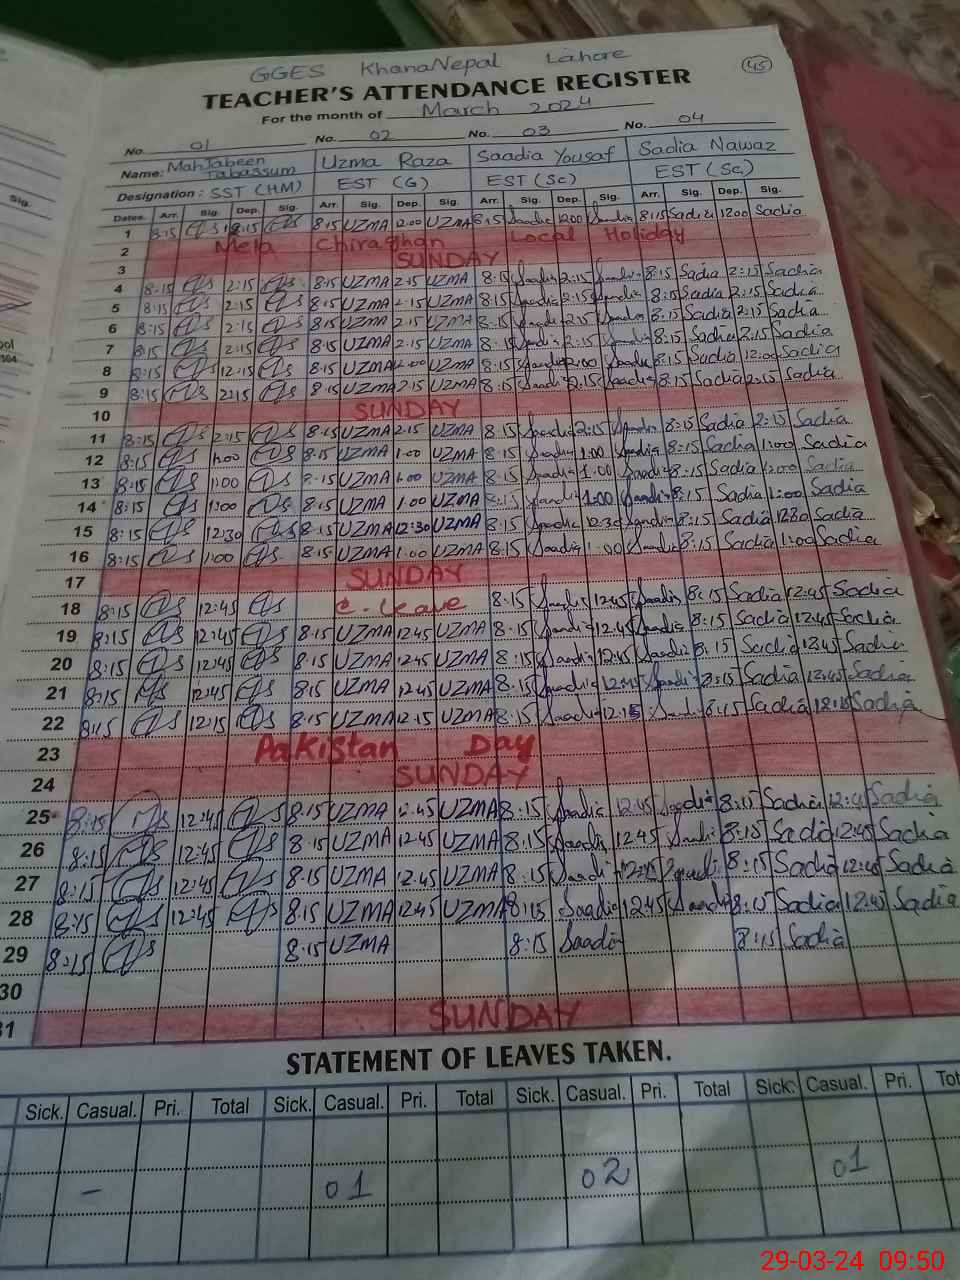 GGES KhanaNepal Lahore
45
TEACHER'S ATTENDANCE REGISTER
For the month of March 2024
No. 01 No. 02 No. 03 No. 04
Name: Mahjabeen Tabassum Uzma Raza Saadia Yousaf Sadia Nawaz
Designation: SST (HM) EST (G) EST (Sc) EST (Sc)
Dates. Arr. Sig. Dep. Sig. Arr. Sig. Dep. Sig. Arr. Sig. Dep. Sig. Arr. Sig. Dep. Sig.
1 8:15 8:15 UZMA 12:00 UZMA 8:15 Saadia 1200 Saadia 8:15 Sadia 1200 Sadia
2 Mela Chiraghan Local Holiday
3 SUNDAY
4 8:15 2:15 8:15 UZMA 2:15 UZMA 8:15 Saadia 2:15 Saadia 8:15 Sadia 2:15 Sadia
5 8:15 2:15 8:15 UZMA 2:15 UZMA 8:15 Saadia 2:15 Saadia 8:15 Sadia 2:15 Sadia
6 8:15 2:15 8:15 UZMA 2.15 UZMA 8:15 Saadia 2:15 Saadia 8:15 Sadia 2:15 Sadia
7 8:15 2:15 8:15 UZMA 2.15 UZMA 8:15 Saadia 2:15 Saadia 8:15 Sadia 2:15 Sadia
8 8:15 12:15 8:15 UZMA UZMA 8:15 Saadia Saadia 8:15 Sadia 12:00 Sadia
9 8:15 2:15 8:15 UZMA 2.15 UZMA 8:15 Saadia 2:15 Saadia 8:15 Sadia 2:15 Sadia
10 SUNDAY
11 8:15 2:15 8.15 UZMA 2.15 UZMA 8:15 Saadia 2:15 Saadia 8:15 Sadia 2:15 Sadia
12 8:15 1:00 8.15 UZMA 1.00 UZMA 8:15 Saadia 1:00 Saadia 8:15 Sadia 1:00 Sadia
13 8:15 1:00 8.15 UZMA 1.00 UZMA 8:15 Saadia 1:00 Saadia 8:15 Sadia 1:00 Sadia
14 8:15 1:00 8.15 UZMA 1.00 UZMA 8:15 Saadia 1:00 Saadia 8:15 Sadia 1:00 Sadia
15 8:15 12:30 8.15 UZMA 12:30 UZMA 8:15 Saadia 12:30 Saadia 8:15 Sadia 12:30 Sadia
16 8:15 1:00 8.15 UZMA 1.00 UZMA 8:15 Saadia 1:00 Saadia 8:15 Sadia 1:00 Sadia
17 SUNDAY
18 8:15 12:45 C. Leave 8:15 Saadia 12:45 Saadia 8:15 Sadia 12:45 Sadia
19 8:15 12:45 8.15 UZMA 12.45 UZMA 8:15 Saadia 12:45 Saadia 8:15 Sadia 12:45 Sadia
20 8:15 12:45 8.15 UZMA 12.45 UZMA 8:15 Saadia 12:45 Saadia 8:15 Sadia 12:45 Sadia
21 8:15 12:45 8.15 UZMA 12.45 UZMA 8:15 Saadia 12:45 Saadia 8:15 Sadia 12:45 Sadia
22 8:15 12:15 8.15 UZMA 12.15 UZMA 8:15 Saadia 12:15 Saadia 8:15 Sadia Sadia
23 Pakistan Day
24 SUNDAY
25 8:15 12:45 8.15 UZMA 12.45 UZMA 8:15 Saadia 12:45 Saadia 8:15 Sadia 12:45 Sadia
26 8:15 12:45 8.15 UZMA 12.45 UZMA 8:15 Saadia 12:45 Saadia 8:15 Sadia 12:45 Sadia
27 8:15 12:45 8.15 UZMA 12.45 UZMA 8:15 Saadia 12:45 Saadia 8:15 Sadia 12:45 Sadia
28 8:15 12:45 8.15 UZMA 12.45 UZMA 8:15 Saadia 12:45 Saadia 8:15 Sadia 12:45 Sadia
29 8:15 8.15 UZMA 8:15 Saadia 8:15 Sadia
30
31 SUNDAY
STATEMENT OF LEAVES TAKEN.
Sick. Casual. Pri. Total Sick. Casual. Pri. Total Sick. Casual. Pri. Total Sick. Casual. Pri. Tot
– 01 02 01
29-03-24 09:50